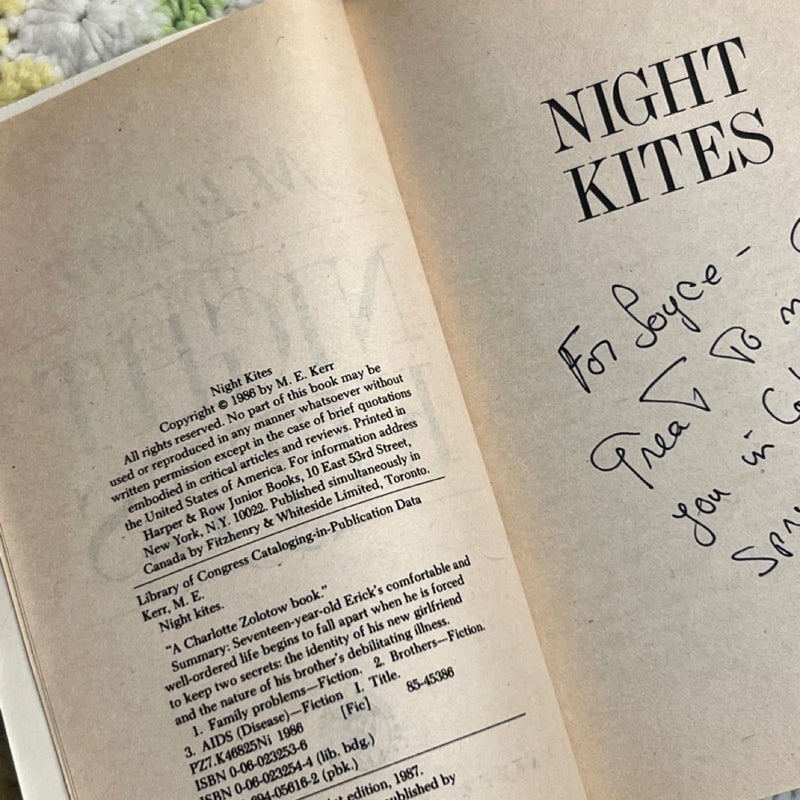 Night Kites
Copyright © 1986 by M. E. Kerr
All rights reserved. No part of this book may be
used or reproduced in any manner whatsoever without
written permission except in the case of brief quotations
embodied in critical articles and reviews. Printed in
the United States of America. For information address
Harper & Row Junior Books, 10 East 53rd Street,
New York, N.Y. 10022. Published simultaneously in
Canada by Fitzhenry & Whiteside Limited, Toronto.
Library of Congress Cataloging-in-Publication Data
Kerr, M. E.
Night kites.
"A Charlotte Zolotow book."
Summary: Seventeen-year-old Erick's comfortable and
well-ordered life begins to fall apart when he is forced
to keep two secrets: the identity of his new girlfriend
and the nature of his brother's debilitating illness.
1. Family problems—Fiction. 2. Brothers—Fiction.
3. AIDS (Disease)—Fiction I. Title.
PZ7.K46825Ni 1986 [Fic] 85-45386
ISBN 0-06-023253-6
ISBN 0-06-023254-4 (lib. bdg.)
ISBN 0-694-05616-2 (pbk.)
edition, 1987.
published by
NIGHT
KITES
For Joyce -
Great To
you in